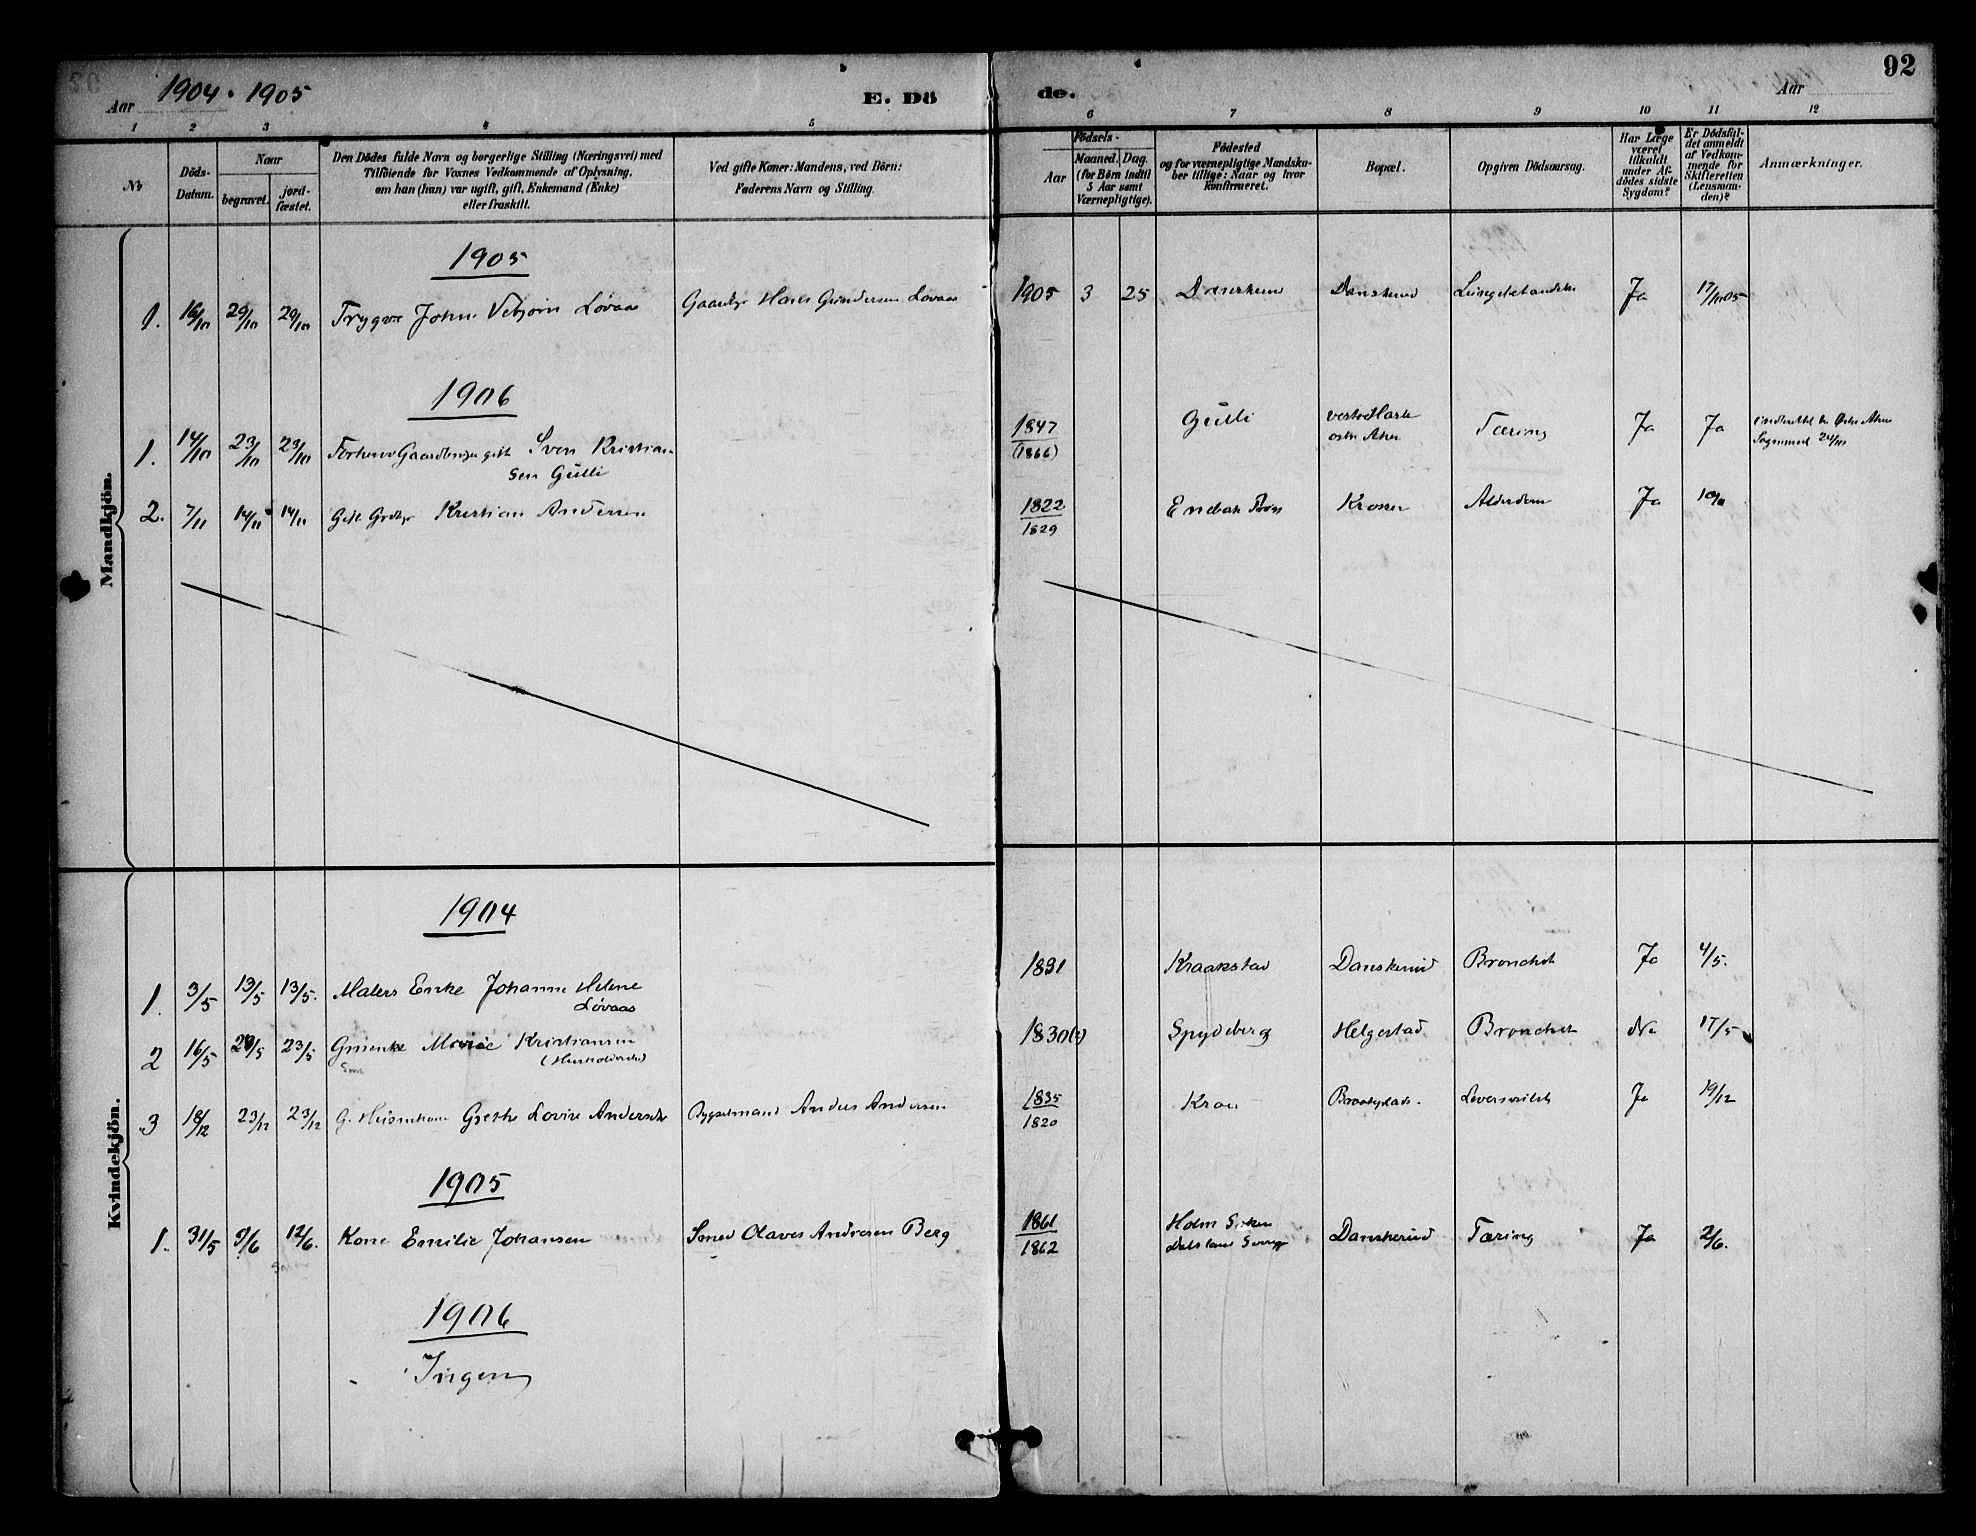 Aar 1904 . 1905
E. Dö
de.
Aar
92
1 2 3 4 5 6 7 8 9 10 11 12
No
Döds-
Datum.
Naar
begravet.
jord-
fæstet.
Den Dödes fulde Navn og borgerlige Stilling (Næringsvei) med
Tilföiende for Voxnes Vedkommende af Oplysning,
om han (hun) var ugift, gift, Enkemand (Enke)
eller fraskilt.
Ved gifte Koner: Mandens, ved Börn:
Faderens Navn og Stilling.
Födsels-
Aar
Maaned. Dag.
(for Börn indtil
5 Aar samt
Værnepligtige).
Födested
og for værnepligtige Mandska-
ber tillige: Naar og hvor
konfirmeret.
Bopæl.
Opgiven Dödsaarsag.
Har Læge
været
tilkaldt
under Af-
dödes sidste
Sygdom?
Er Dödsfal-
det anmeldt
af Vedkom-
mende for
Skifteretten
(Lensman-
den)?
Anmærkninger.
Mandkjön.
1905
1. 16/10 29/10 29/10 Trygve John Vebjørn Løvaas Hans Gundersen Løvaas 1905 3 25 Danskerud Danskerud Ja 17/10 05
1906
1. 14/10 23/10 23/10 Gaardbruger gift Sven Kristian-
sen Gulli
1847
(1866)
Gulli
østre Aker
Tæring Ja Ja
2. 7/11 14/11 14/11 Gift Kristian Andersen
1822
1829
Krosser Alderdom Ja
Kvindekjön.
1904
1. 3/5 13/5 13/5. Malers Enke Johanne Helene
Løvaas
1831 Kraakstad Danskerud Bronchit Ja 4/5.
2 16/5 23/5 23/5 Marie Kristiansen
1830(?) Spydeberg Helgestad Bronchit 17/5
3 18/12 23/12 23/12 G. Grethe Lovise Andersen Bygselmand Anders Andersen
1835
1820
Ja 19/12
1905
1. 31/5 9/6 12/6. Kone Emilie Johansen Smed Olaves Andresen Berg
1861
1862
Holm Sokn
Dalsland
Danskerud Tæring Ja 2/6.
1906
Ingen